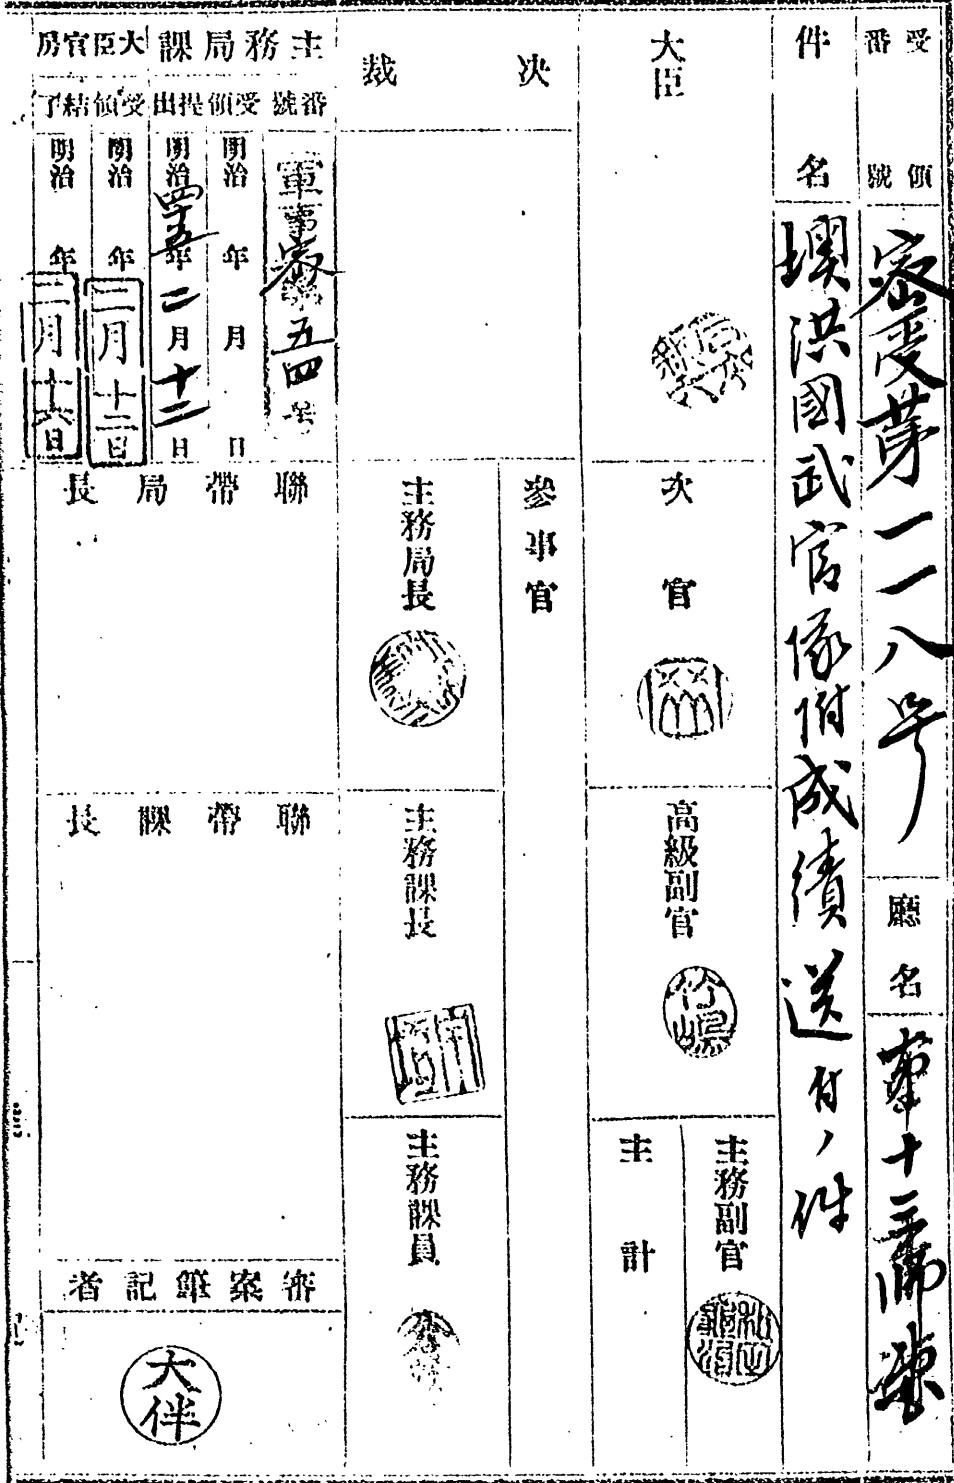 受領番號
密受第一一八号
廳名
第十三師団
件名
墺洪國武官隊附成績送付ノ件
大臣
次官
高級副官
竹島
主務副官
主計
決裁
參事官
主務局長
主務課長
主務課員
主務局課
番號
軍事密第五四号
受領
明治 年 月 日
提出
明治四十五年二月十二日
大臣官房
受領
明治 年二月十二日
結了
明治 年二月十六日
聯帶局長
聯帶課長
審案筆記者
大伴